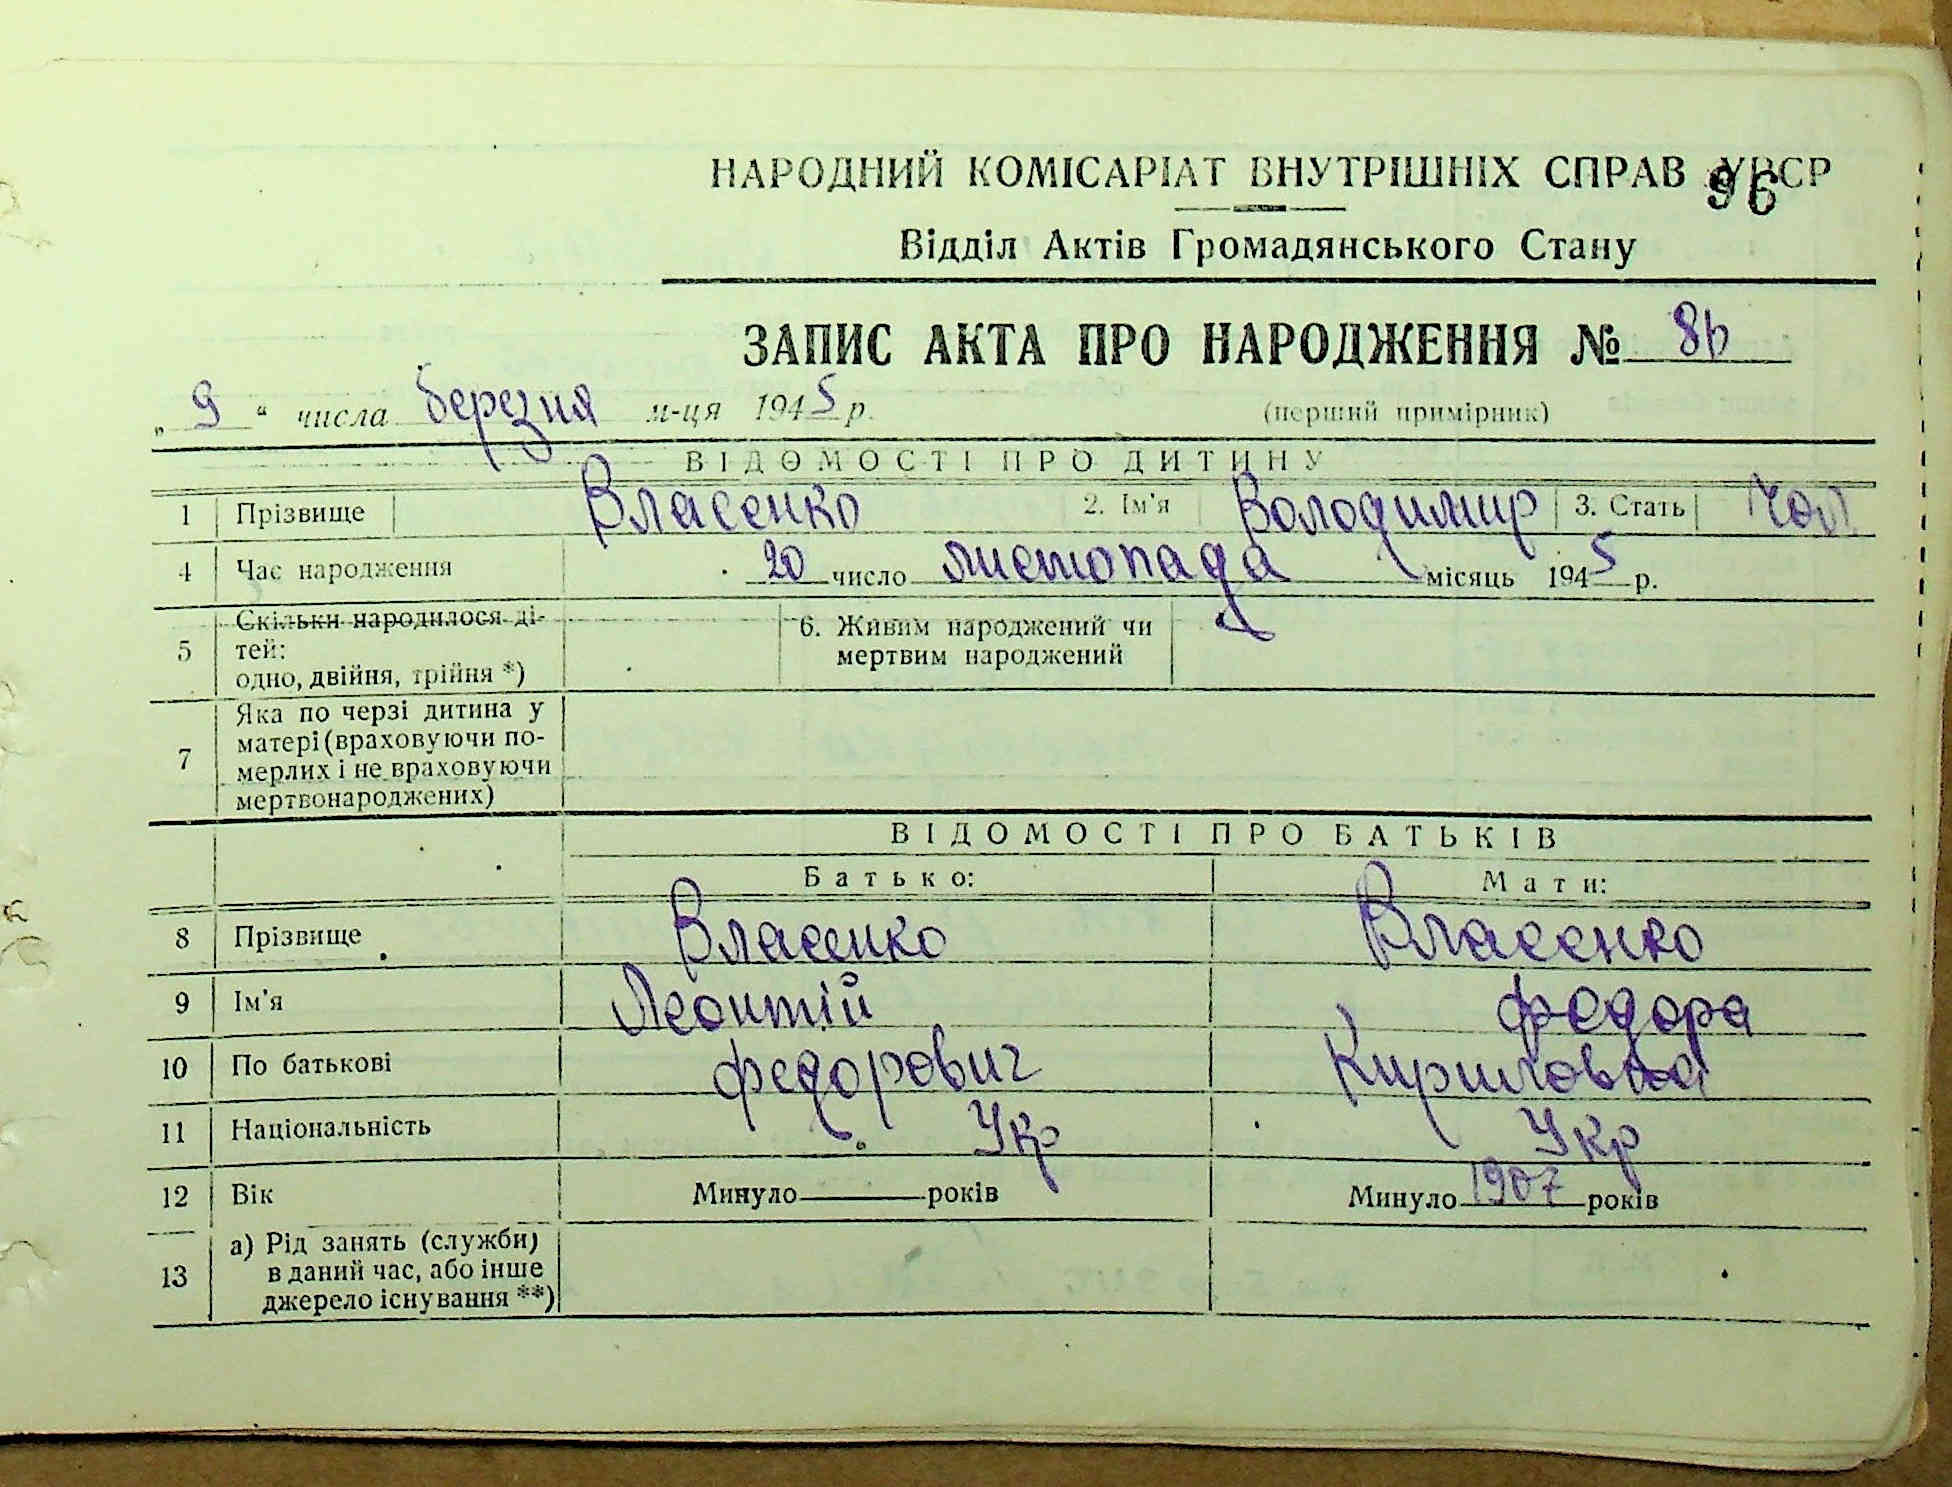 НАРОДНИЙ КОМІСАРІАТ ВНУТРІШНІХ СПРАВ УРСР
96
Відділ Актів Громадянського Стану
ЗАПИС АКТА ПРО НАРОДЖЕННЯ № 86
„ 9 “ числа березня м-ця 1945 р. (перший примірник)
ВІДОМОСТІ ПРО ДИТИНУ
1 Прізвище Власенко 2. Ім'я Володимир 3. Стать чол
4 Час народження 20 число листопада місяць 1945 р.
5 Скільки народилося ді-
тей:
одно, двійня, трійня *)
6. Живим народжений чи
мертвим народжений
7 Яка по черзі дитина у
матері (враховуючи по-
мерлих і не враховуючи
мертвонароджених)
ВІДОМОСТІ ПРО БАТЬКІВ
Батько: Мати:
8 Прізвище Власенко Власенко
9 Ім'я Леонтій Федора
10 По батькові Федорович Кириловна
11 Національність Укр Укр
12 Вік Минуло років Минуло 1907 років
13 а) Рід занять (служби)
в даний час, або інше
джерело існування **)